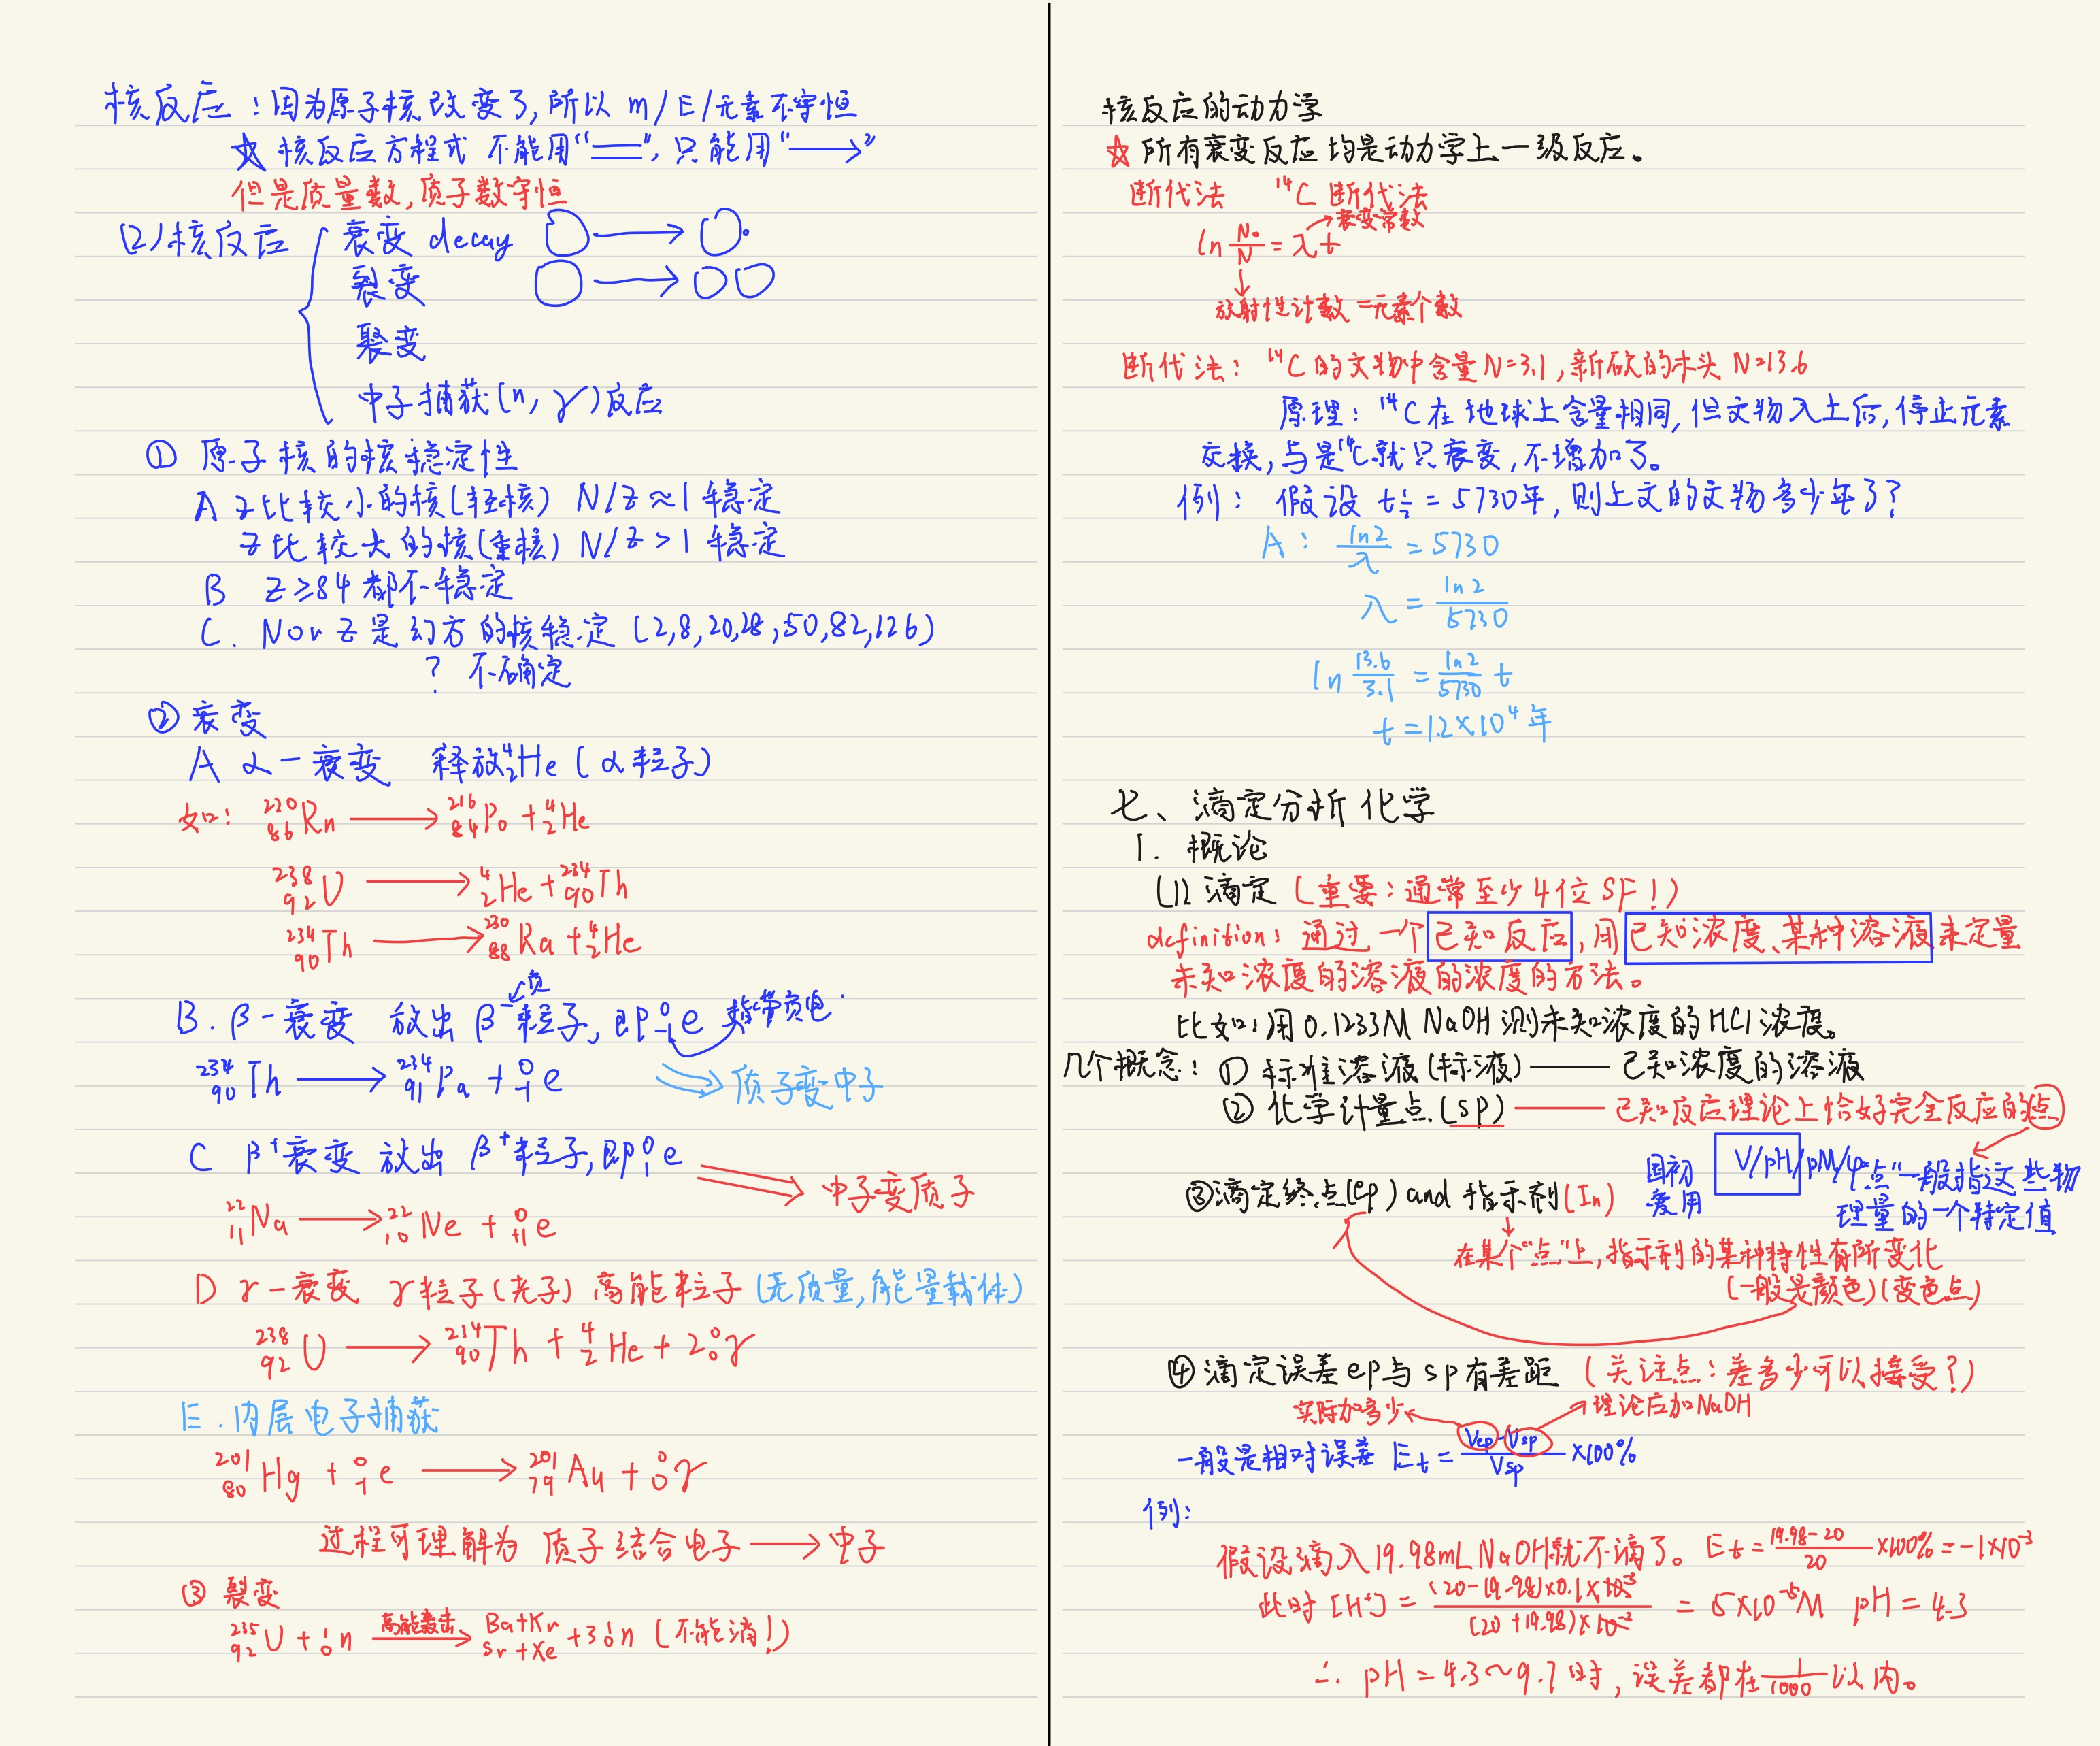 核反应：因为原子核改变了,所以 m/E/元素不守恒
☆ 核反应方程式 不能用“══”,只能用“⟶”
但是质量数,质子数守恒
(2)核反应
衰变 decay
裂变
聚变
中子捕获(n, γ)反应
① 原子核的核稳定性
A Z比较小的核(轻核) N/Z≈1 稳定
Z比较大的核(重核) N/Z>1 稳定
B Z≥84 都不稳定
C. N or Z是幻方的核稳定 (2,8,20,28,50,82,126)
? 不确定
② 衰变
A α-衰变 释放⁴₂He (α粒子)
如: ²²⁰₈₆Rn ⟶ ²¹⁶₈₄Po + ⁴₂He
²³⁸₉₂U ⟶ ⁴₂He + ²³⁴₉₀Th
²³⁴₉₀Th ⟶ ²³⁰₈₈Ra + ⁴₂He
负
B. β-衰变 放出 β⁻粒子, 即⁰₋₁e 指带负电.
²³⁴₉₀Th ⟶ ²³⁴₉₁Pa + ⁰₋₁e
质子变中子
C β⁺衰变 放出 β⁺粒子,即⁰₁e
中子变质子
²²₁₁Na ⟶ ²²₁₀Ne + ⁰₊₁e
D γ-衰变 γ粒子(光子) 高能粒子 (无质量,能量载体)
²³⁸₉₂U ⟶ ²³⁴₉₀Th + ⁴₂He + 2⁰₀γ
E. 内层电子捕获
²⁰¹₈₀Hg + ⁰₋₁e ⟶ ²⁰¹₇₉Au + ⁰₀γ
过程可理解为 质子结合电子 ⟶ 中子
③ 裂变
高能轰击
²³⁵₉₂U + ¹₀n ⟶ Ba+Kr + 3¹₀n (不能滴!)
Sr+Xe
核反应的动力学
☆ 所有衰变反应均是动力学上一级反应。
断代法 ¹⁴C 断代法
衰变常数
ln N₀/N = λt
放射性计数 = 元素个数
断代法: ¹⁴C的文物中含量N=3.1,新砍的木头 N=13.6
原理: ¹⁴C在地球上含量相同,但文物入土后,停止元素
交换,与是¹⁴C就只衰变,不增加了。
例: 假设 t½ = 5730年,则上文的文物多少年了?
A: ln2/λ = 5730
λ = ln2/5730
ln 13.6/3.1 = ln2/5730 t
t = 1.2×10⁴ 年
七、滴定分析化学
1. 概论
(1) 滴定 (重要: 通常至少4位SF!)
definition: 通过一个已知反应,用已知浓度、某种溶液来定量
未知浓度的溶液的浓度的方法。
比如:用0.1233M NaOH测未知浓度的HCl浓度。
几个概念: ① 标准溶液(标液) —— 已知浓度的溶液
② 化学计量点.(sp) —— 已知反应理论上恰好完全反应的点
国初 V/pH/pM/φ “点”一般指这些物
竞用 理量的一个特定值
③滴定终点(ep) and 指示剂(In)
在某个“点”上,指示剂的某种特性有所变化
(一般是颜色)(变色点)
④滴定误差 ep与sp有差距 (关注点: 差多少可以接受?)
实际加多少 理论应加NaOH
一般是相对误差 Et = (Vep-Vsp)/Vsp ×100%
例:
假设滴入19.98mL NaOH就不滴了。 Et = (19.98-20)/20 ×100% = -1×10⁻³
此时 [H⁺] = (20-19.98)×0.1×10⁻³/(20+19.98)×10⁻³ = 5×10⁻⁵M pH = 4.3
∴ pH = 4.3~9.7时,误差都在1/1000以内。